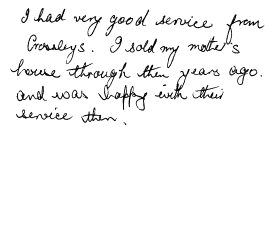 I had very good service from
Crossleys. I sold my mother's
house through then years ago.
and was happy with their
service then.